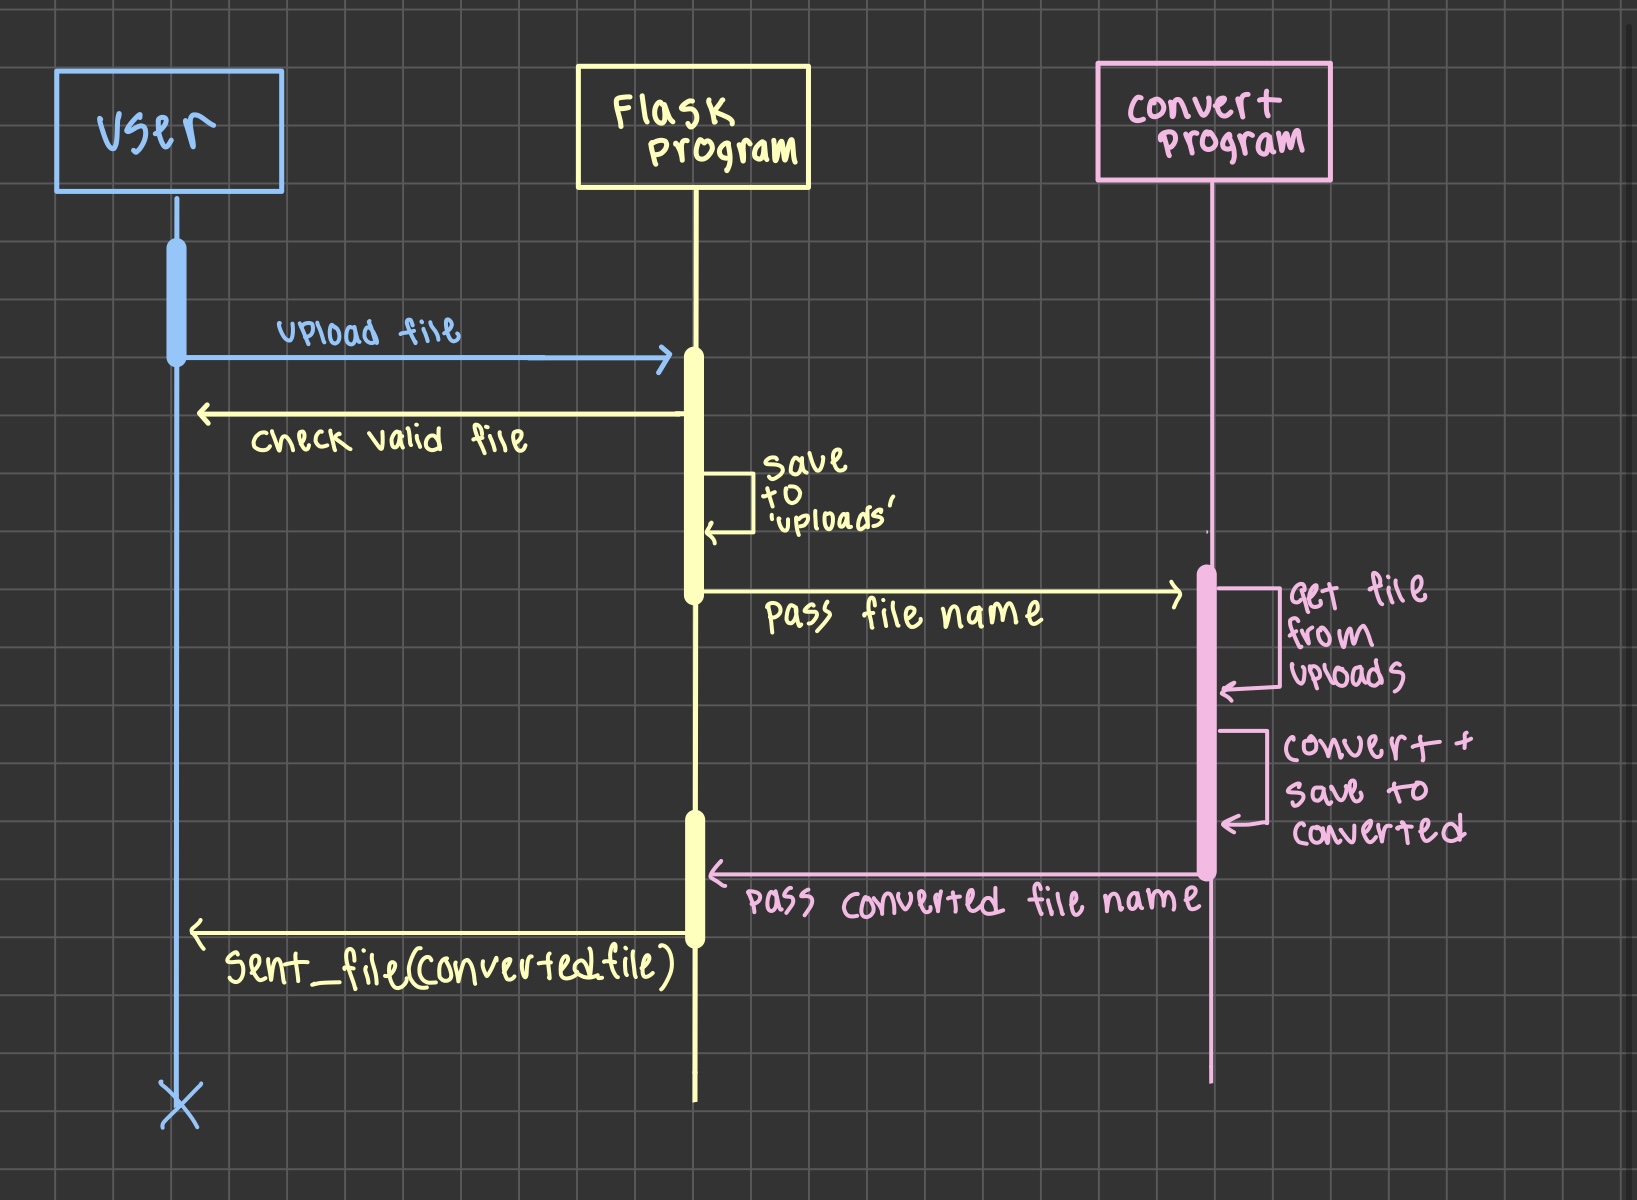 User
Flask
program
convert
program
upload file
check valid file
save
to
'uploads'
pass file name
get file
from
uploads
convert +
save to
converted
pass converted file name
sent_file(converted_file)